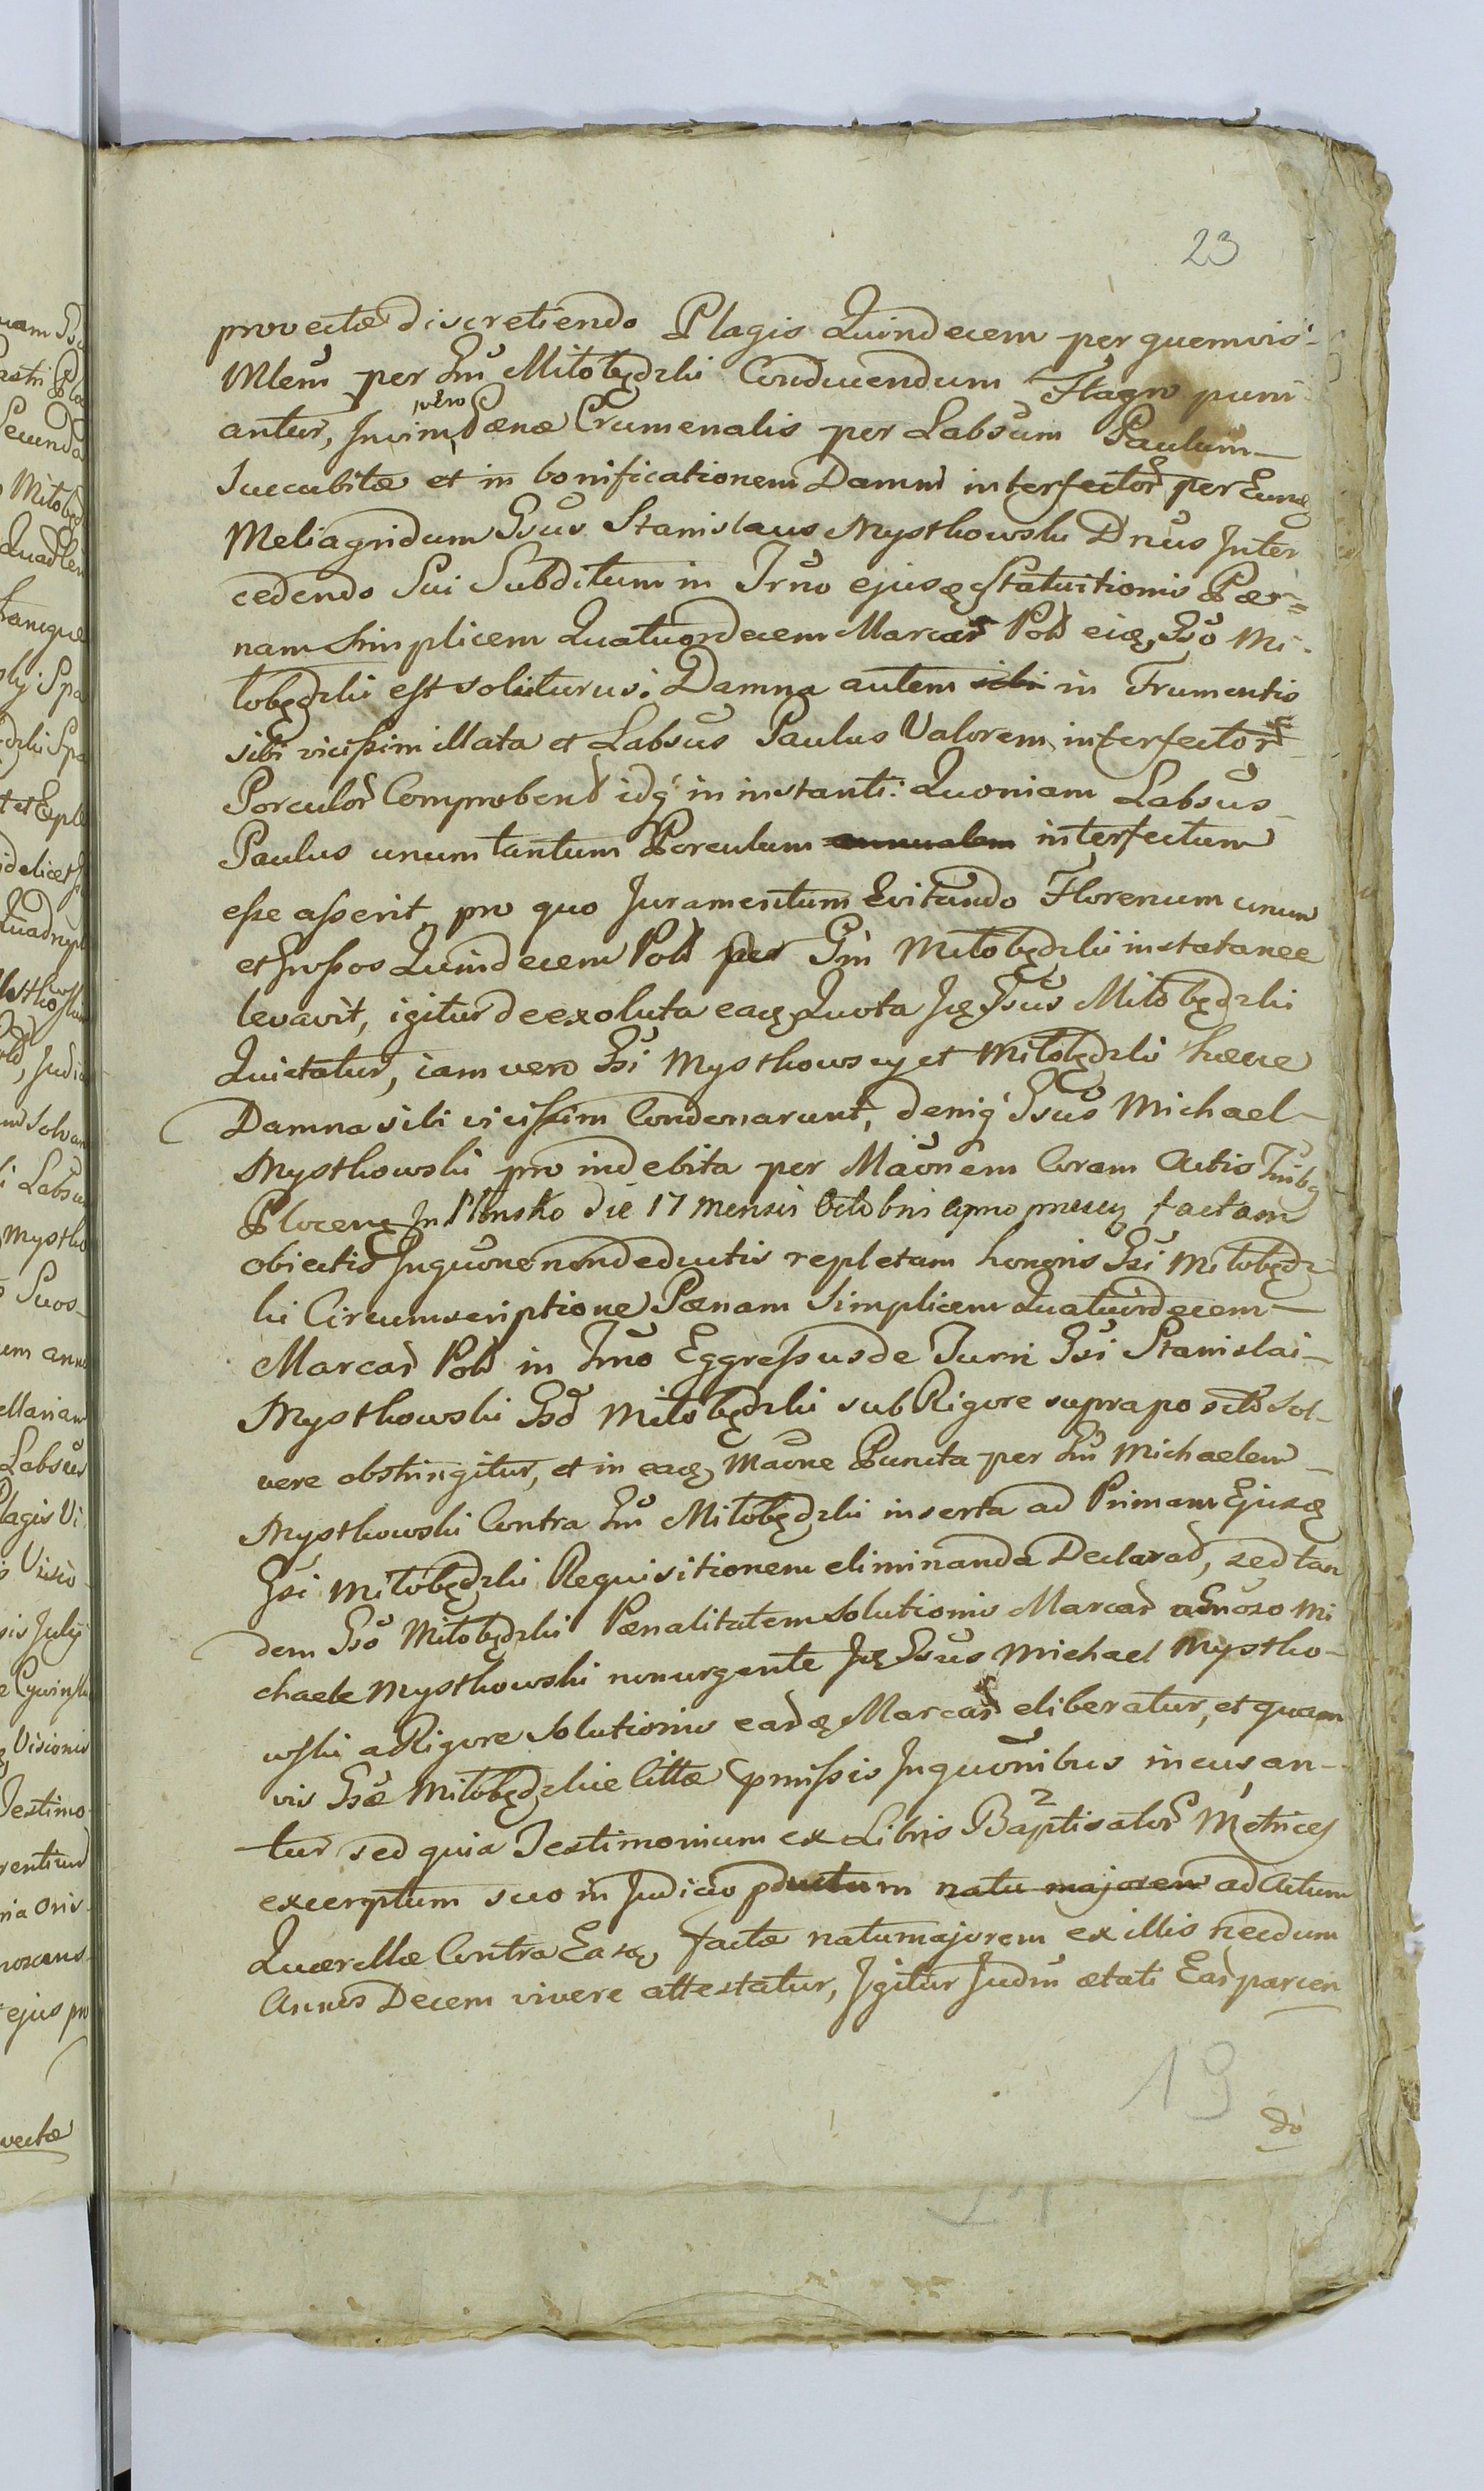 23
provectæ discretiendo Plagis Quindecem per quemvis
Mlem per Gm̃ Miłobędzki Conducendum Flagro puni-
antur, In vim vero Pænæ Crumenalis per Labsum Paulum
Succubitæ et in bonificationem Damni interfector per Eundę
Meliagridum Gsus Stanislaus Mystkowski Dnus Inter
cedendo Sui Subditum in Trno ejusdę Statuitionis Pæ-
nam Simplicem Quatuordecem Marcar Pol eidę Gso Mi-
łobędzki est soluturus: Damna autem sibi in Frumentis
sibi vicissim illata et Labsus Paulus Valorem interfector
Porculor Comprobend idq in instanti: Quoniam Labsus
Paulus unum tantum Porculum interfectum
esse asserit, pro quo Juramentum Evitando Florenum unum
et Grossos Quindecem Pol per Gm̃ Miłobędzki instatanee
levavit, igitur de exoluta eadę Quota Idę Gsus Miłobędzki
Quietatur, iam vero Gsi Mystkowscy et Miłobędzki hæcce
Damna sibi vicissim Condonarunt, deniq Gsus Michael
Mystkowski pro indebita per Maõnem Coram Actis
Plocen In Płońsko die 17 Mensis Octobris factam
obiectis Inquõne non deductis repletam honoris Gsi Miłobędz-
ki Circumscriptione Pænam Simplicem Quatuordecem
Marcar Pol in Trno Eggressus de Turri Gsi Stanislai
Mystkowski Gso Miłobędzki sub Rigore supraposito Sol-
vere obstringitur, et in eadę Maõne Puncta per Gm̃ Michaelem
Mystkowski Contra Gm̃ Miłobędzki inserta ad Primam Ejusdę
Gsi Miłobędzki Requisitionem eliminanda Declarad, sed tan
dem Gso Miłobędzki Pænalitatem Solutionis Marcar Mi
chaele Mystkowski non urgente Idę Gsus Michael Mystko-
wski a Rigore Solutionis eardę Marcar eliberatur, et quam
vis Gsæ Miłobędzkie Cittæ præmissis Inquõnibus incusan-
tur sed quia Testimonium ex Libris Baptisator Metrices
excerptum suo in Judicio pductum natu majorem ad Actum
Quærellæ Contra Easdę factæ natu majorem ex illis necdum
Annis Decem vivere attestatur, Igitur Judm ætati Ear parcen
19
do